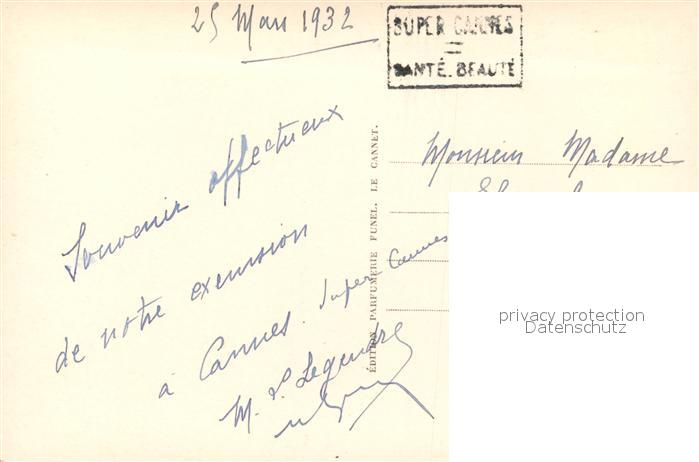 25 Mars 1932
SUPER CANNES
=
SANTÉ. BEAUTÉ
Souvenir affectueux
de notre excursion
à Cannes. Super-Cannes
M.
ÉDITION PARFUMERIE FUNEL. LE CANNET.
Monsieur Madame
privacy protection
Datenschutz